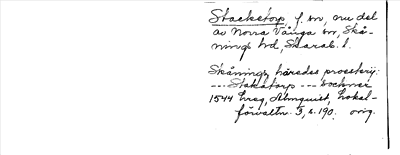 Stacketorp, f. sn, nu del
av Norra Vånga sn, Skå-
nings hd, Skarab. l.
Skånings härades prosteri:
--- Stakatorp --- sochner
1544 hreg, Almquist, Lokal-
förvaltn. 3, s. 190. orig.